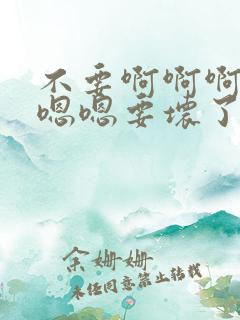 不要啊啊啊
嗯嗯要坏了
余姗姗
未经同意禁止转载